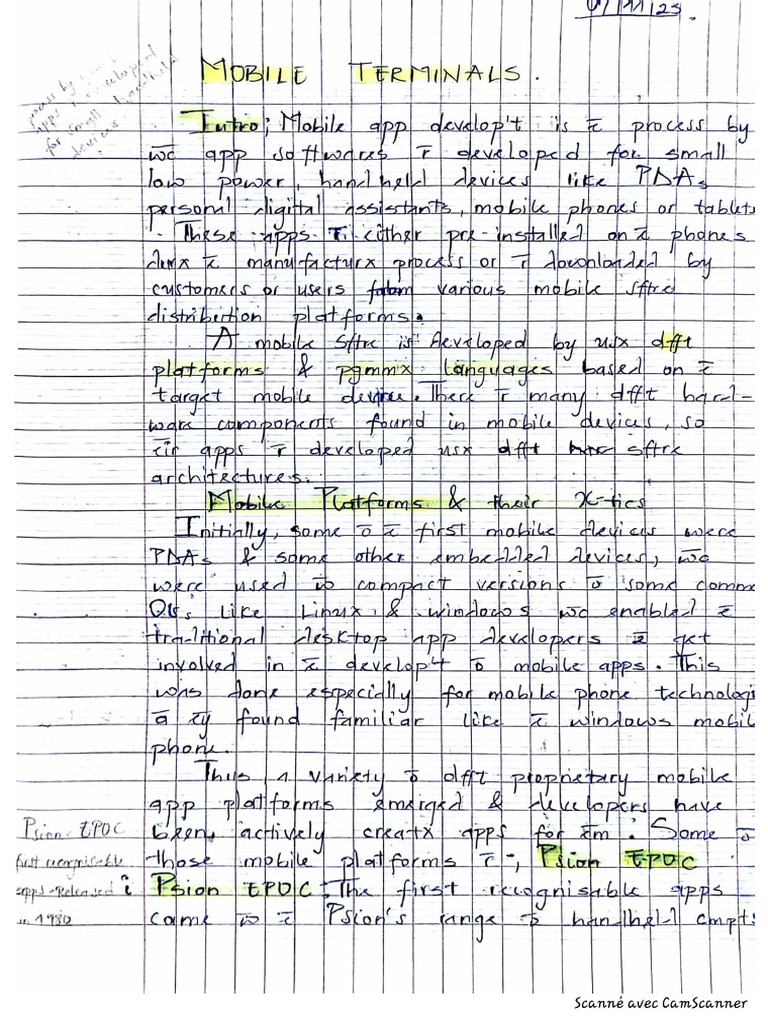 07/11/23
MOBILE TERMINALS.
Intro; Mobile app develop't is x̄ process by
w̄c app softwares r developed for small
low power, handheld devices like PDAs
personal digital assistants, mobile phones or tablets
These apps r either pre-installed on x̄ phones
durx x̄ manufacturx process or r downloaded by
customers or users from various mobile sftre
distribution platforms.
A mobile sftre is developed by usx dfft
platforms & pgmmx languages based on x̄
target mobile device. There r many dfft hard-
ware components found in mobile devices, so
x̄ir apps r developed usx dfft sftre
architectures.
Mobile Platforms & their X-tics
Initially, some ō x̄ first mobile devices were
PDAs & some other embedded devices, w̄c
were used w̄ compact versions ō some commo
OSs like Linux & windows w̄c enabled x̄
traditional desktop app developers to get
involved in x̄ develop't ō mobile apps. This
was done especially for mobile phone technologi
ā x̄y found familiar like x̄ windows mobil
phone.
Thus, a variety ō dfft proprietary mobile
app platforms emerged & developers have
been actively creatx apps for x̄m. Some ō
those mobile platforms r -; Psion EPOC
i Psion EPOC: The first recognisable apps
came w̄ x̄ Psion's range ō handheld cmpts
process by
apps r developed
for small handheld
devices
Psion EPOC
first recognisable
apps-Released
in 1980
Scanné avec CamScanner